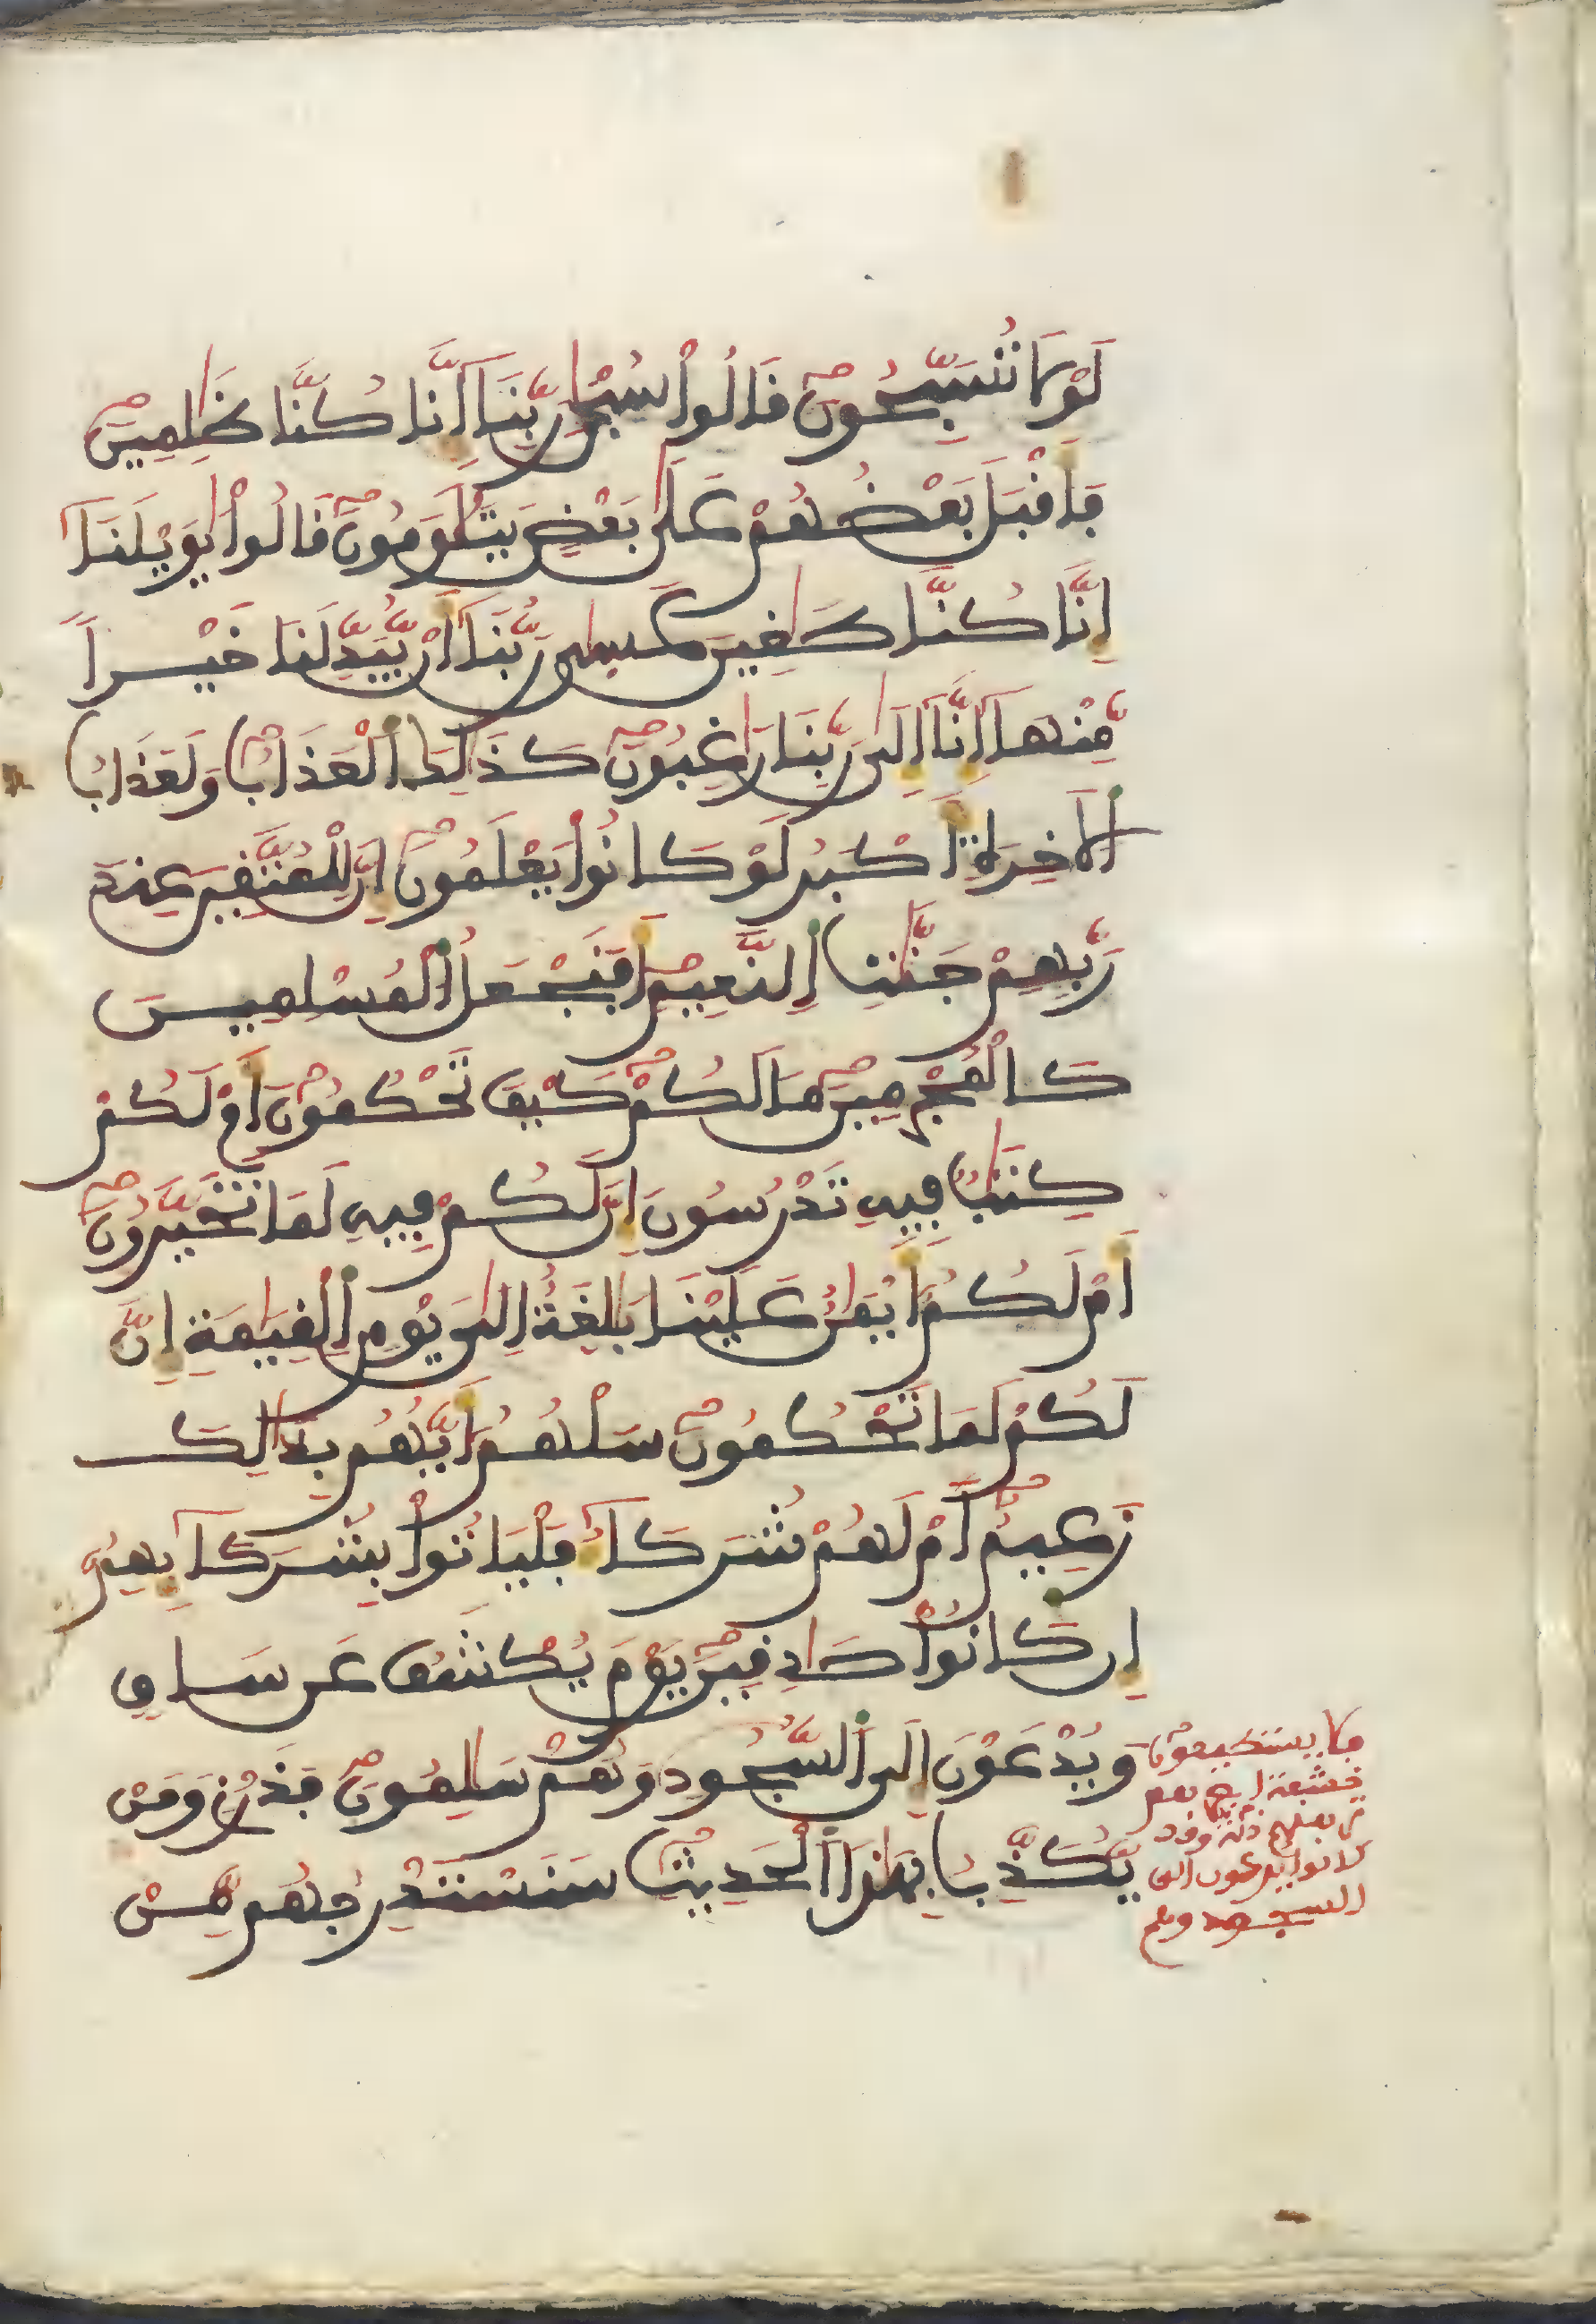 لَوْلَا تُسَبِّحُونَ قَالُواْ سُبْحَٰنَ رَبِّنَا إِنَّا كُنَّا ظَٰلِمِينَ
فَأَقْبَلَ بَعْضُهُمْ عَلَىٰ بَعْضٖ يَتَلَٰوَمُونَ قَالُواْ يَٰوَيْلَنَا
إِنَّا كُنَّا طَٰغِينَ عَسىٰ رَبُّنَا أَنْ يُّبَدِّلَنَا خَيْراً
مِّنْهَا إِنَّا إِلَىٰ رَبِّنَا رَٰغِبُونَ كَذَٰلِكَ اَ۬لْعَذَابُ وَلَعَذَابُ
اُ۬لَاخِرَةِ أَكْبَرُ لَوْ كَانُواْ يَعْلَمُونَ إِنَّ لِلْمُتَّقِينَ عِندَ
رَبِّهِمْ جَنَّٰتِ اِ۬لنَّعِيمِ أَفَنَجْعَلُ اُ۬لْمُسْلِمِينَ
كَالْمُجْرِمِينَ مَا لَكُمْ كَيْفَ تَحْكُمُونَ أَمْ لَكُمْ
كِتَٰبٞ فِيهِ تَدْرُسُونَ إِنَّ لَكُمْ فِيهِ لَمَا تَخَيَّرُونَ
أَمْ لَكُمُ أَيْمَٰنٌ عَلَيْنَا بَٰلِغَةٌ إِلَىٰ يَوْمِ اِ۬لْقِيَٰمَةِ إِنَّ
لَكُمْ لَمَا تَحْكُمُونَ سَلْهُمُ أَيُّهُم بِذَٰلِكَ
زَعِيمٌ أَمْ لَهُمْ شُرَكَاءُ فَلْيَاتُواْ بِشُرَكَائِهِمُ
إِن كَانُواْ صَٰدِقِينَ يَوْمَ يُكْشَفُ عَن سَاقٖ
وَيُدْعَوْنَ إِلَى اَ۬لسُّجُودِ وَهُمْ سَٰلِمُونَ فَذَرْنِي وَمَنْ
يُّكَذِّبُ بِهَٰذَا اَ۬لْحَدِيثِ سَنَسْتَدْرِجُهُم مِّنْ
فلا يستطيعون
خشعة ابصرهم
ترهقهم ذلة وقد
كانوا يدعون الى
السجود وهم